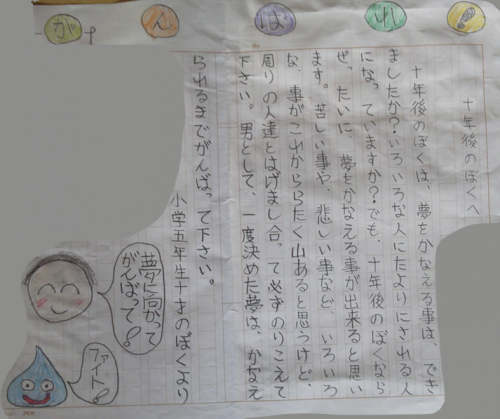 がんばれ!
十年後のぼくへ
十年後のぼくは、夢をかなえる事は、でき
ましたか?いろいろな人にたよりにされる人
になっていますか?でも、十年後のぼくなら
ぜったいに、夢をかなえる事が出来ると思い
ます。苦しい事や、悲しい事など、いろいろ
な、事がこれかららたく山あると思うけど、
周りの人達とはげまし合って必ずのりこえて
下さい。男として、一度決めた夢は、かなえ
られるまでがんばって下さい。
小学五年生十才のぼくより
夢に向かって
がんばって!
ファイト!